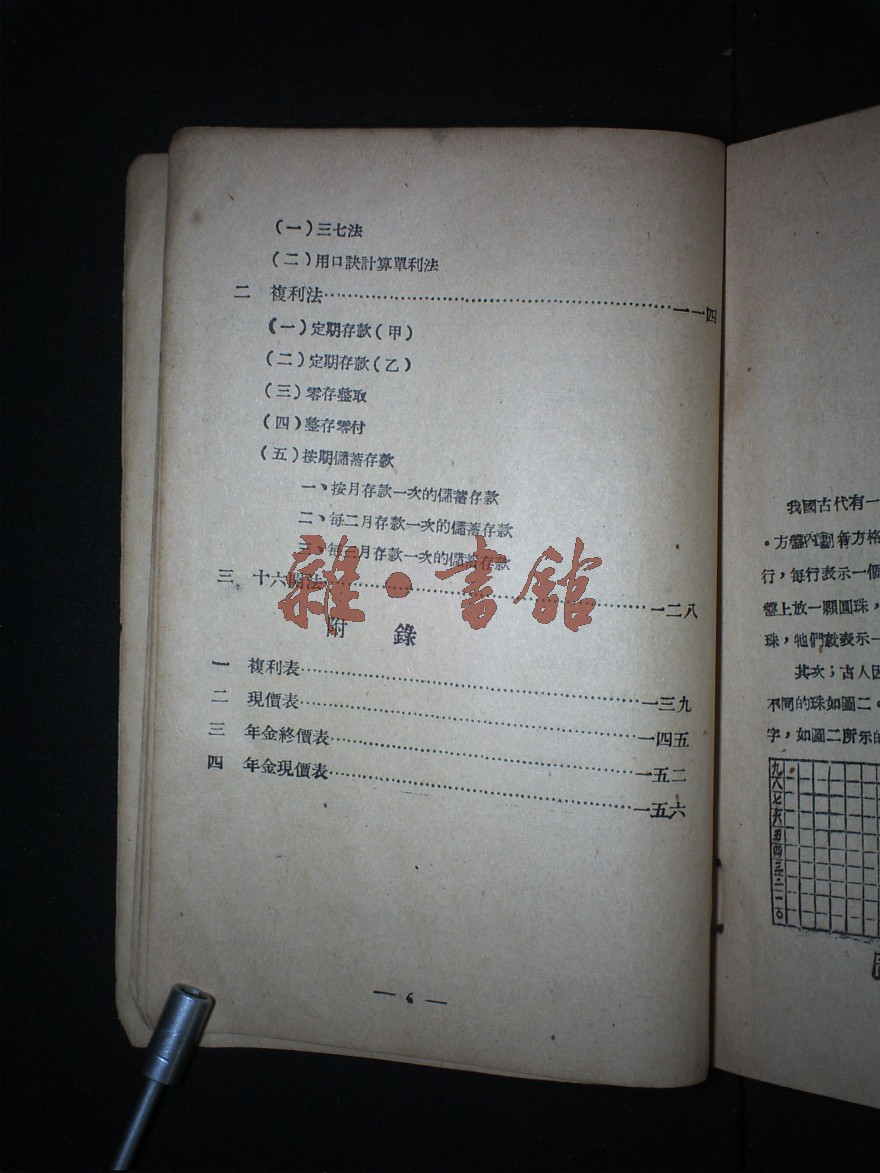 (一)三七法
(二)用口訣計算單利法
二 複利法……一一四
(一)定期存款(甲)
(二)定期存款(乙)
(三)零存整取
(四)整存零付
(五)按期儲蓄存款
一、按月存款一次的儲蓄存款
二、每二月存款一次的儲蓄存款
三、每三月存款一次的儲蓄存款
三 十六開法……一二八
附 錄
一 複利表……一三九
二 現價表……一四五
三 年金終價表……一五二
四 年金現價表……一五六
— 6 —
雜·書館
我國古代有一
。方盤內劃着方格
行,每行表示一個
盤上放一顆圓珠,
珠,牠們就表示一
其次;古人因
不同的珠如圖二。
字,如圖二所示的
九
八
七
六
五
四
三
二
一
〇